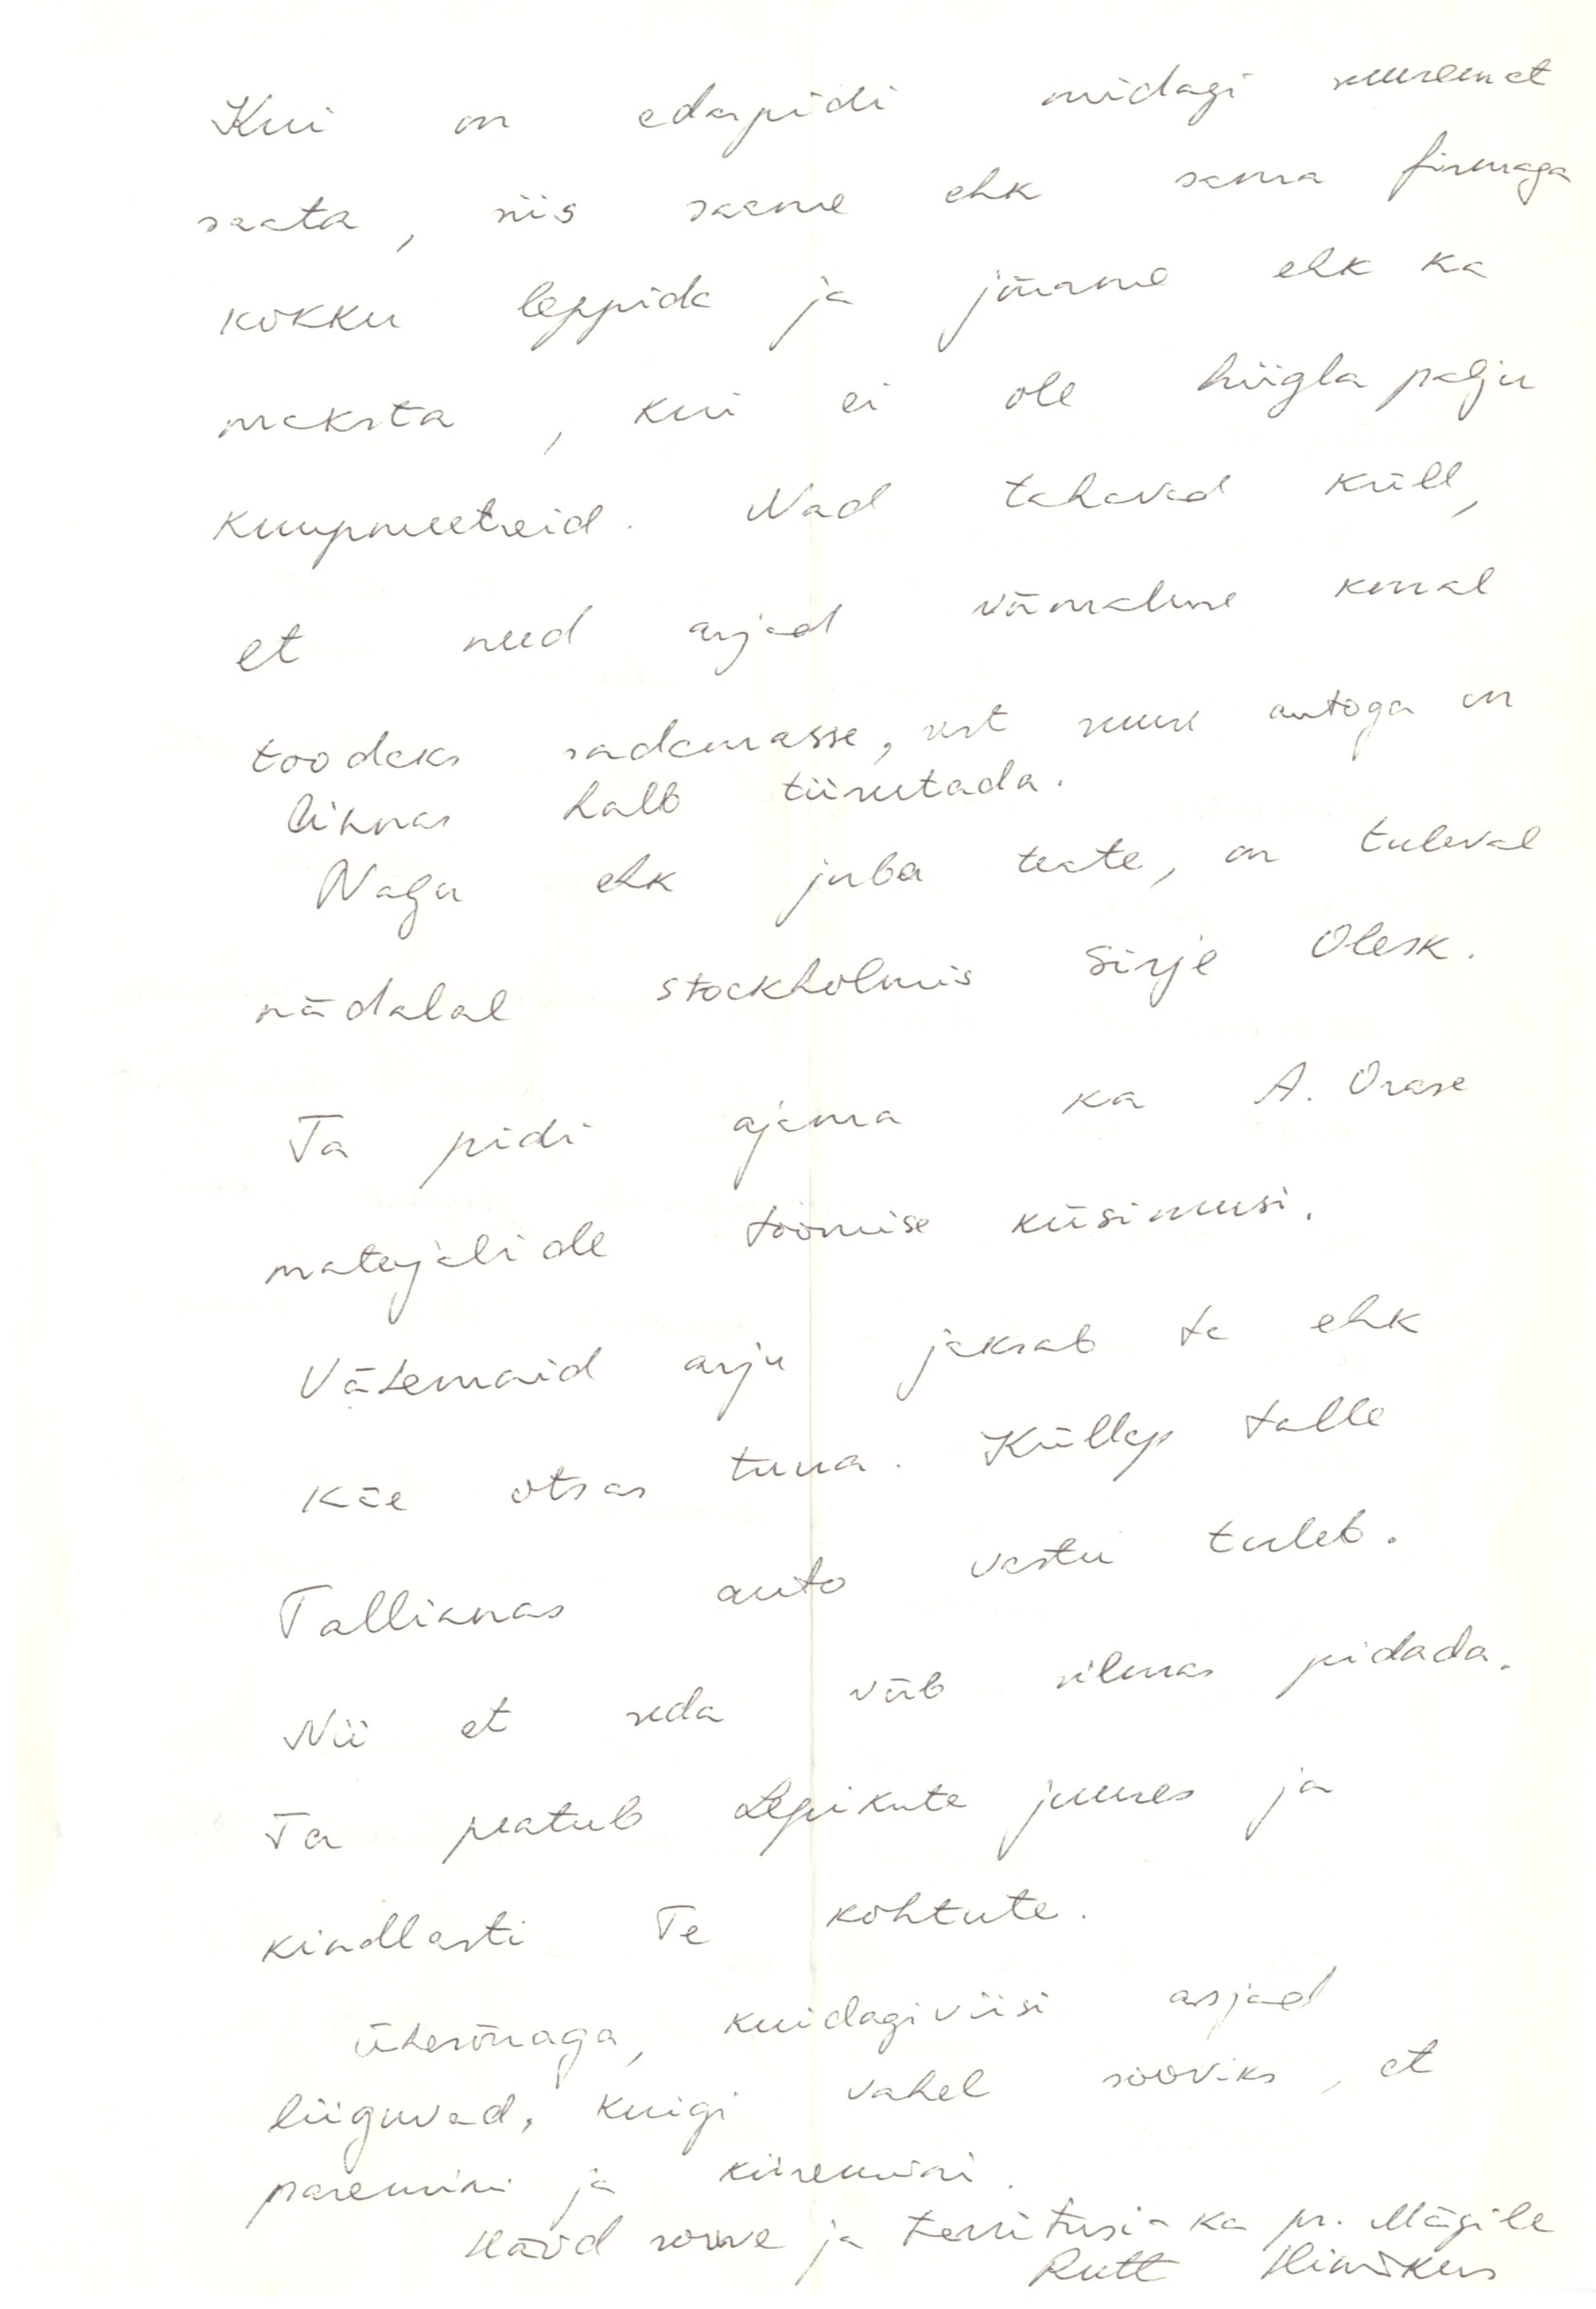 Kui on edaspidi midagi suuremat
saata, siis saame ehk sama firmaga
kokku leppida ja jõuame ehk ka
maksta, kui ei ole hiigla palju
kuupmeetreid. Nad tahavad küll,
et need asjad võimaluse korral
toodaks sadamasse, sest suure autoga on
linnas halb tiirutada.
Nagu ehk juba teate, on tuleval
nädalal Stockholmis Sirje Olesk.
Ta pidi ajama ka A. Orase
materjalide toomise küsimusi.
Vähemaid asju jaksab ta ehk
käe otsas tuua. Küllap talle
Tallinnas auto vastu tuleb.
Nii et seda võib silmas pidada.
Ta peatub Lepikute juures ja
kindlasti Te kohtute.
Ühesõnaga, kuidagiviisi asjad
liiguvad, kuigi vahel sooviks, et
paremini ja kiiremini.
Häid soove ja tervitusi - ka pr. Mägile
Rutt Hinrikus